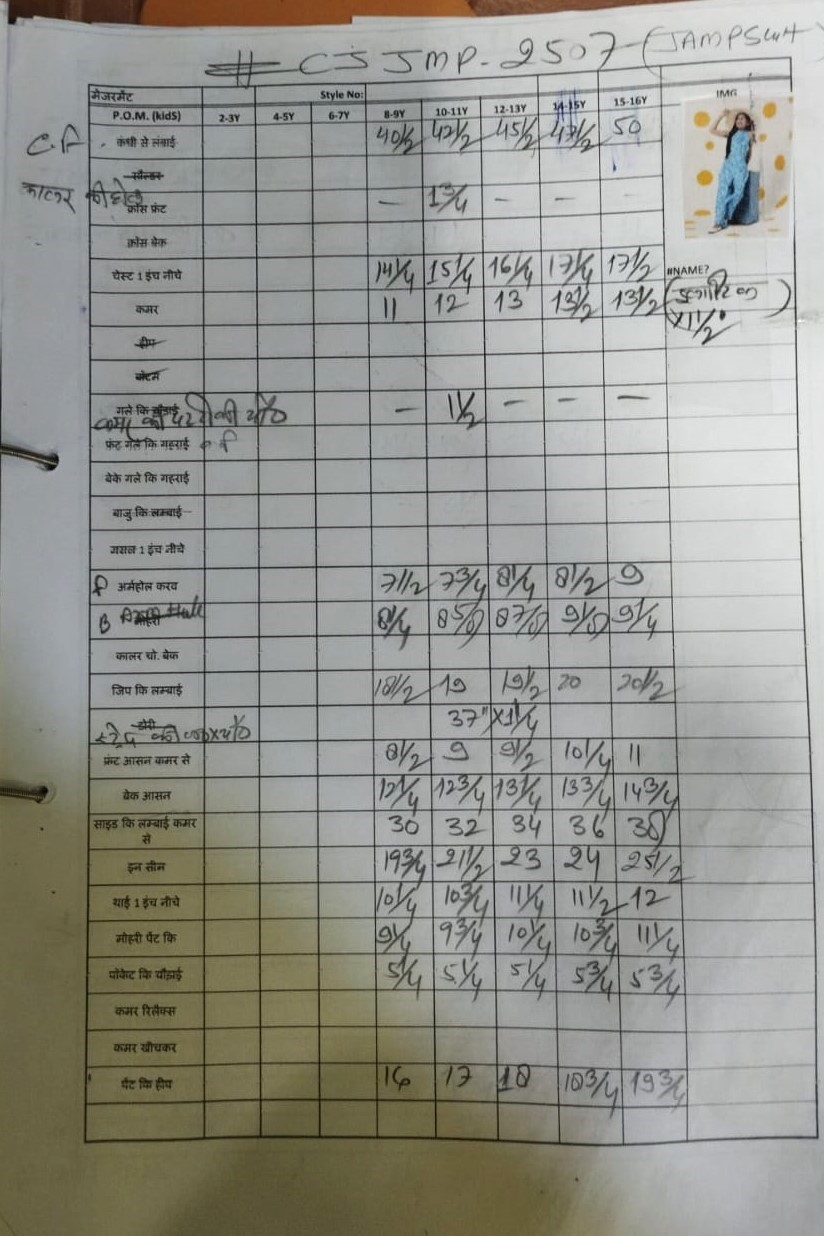 # CJ JMP-2507-(JAMPSuit)
मेजरमेंट Style No: IMG
P.O.M. (kidS) 2-3Y 4-5Y 6-7Y 8-9Y 10-11Y 12-13Y 14-15Y 15-16Y
C.F. कंधी से लंबाई 40½ 42½ 45½ 47½ 50
सोल्डर
कालर की चौ०
क्रॉस फ्रंट - 1¾ - - -
क्रॉस बेक
चेस्ट 1 इंच नीचे 14¼ 15¼ 16¼ 17¼ 17½ #NAME?
कमर 11 12 13 13½ 13½ (इलास्टिक)
X11½"
हीप
बॉटम
गले कि चौड़ाई - 1½ - - -
कमर की पट्टी की चौ०
फ्रंट गले कि गहराई
बेके गले कि गहराई
बाजु कि लम्बाई
मसल 1 इंच नीचे
F अर्महोल करव 7½ 7¾ 8¼ 8½ 9
B मोहरी 8¼ 85/8 87/8 91/8 9¼
कालर चो. बेक
जिप कि लम्बाई 18½ 19 19½ 20 20½
डोरी 37"X1¼
फ्रंट आसन कमर से 8½ 9 9½ 10¼ 11
बेक आसन 12¼ 12¾ 13¼ 13¾ 14¾
साइड कि लम्बाई कमर से 30 32 34 36 38
इन सीन 19¾ 21½ 23 24 25½
थाई 1 इंच नीचे 10¼ 10¾ 11¼ 11½ 12
मोहरी पेंट कि 9¼ 9¾ 10¼ 10¾ 11¼
पॉकेट कि चौड़ाई 5¼ 5¼ 5¼ 5¾ 5¾
कमर रिलैक्स
कमर खीचकर
पेंट कि हीप 16 17 18 18¾ 19¾